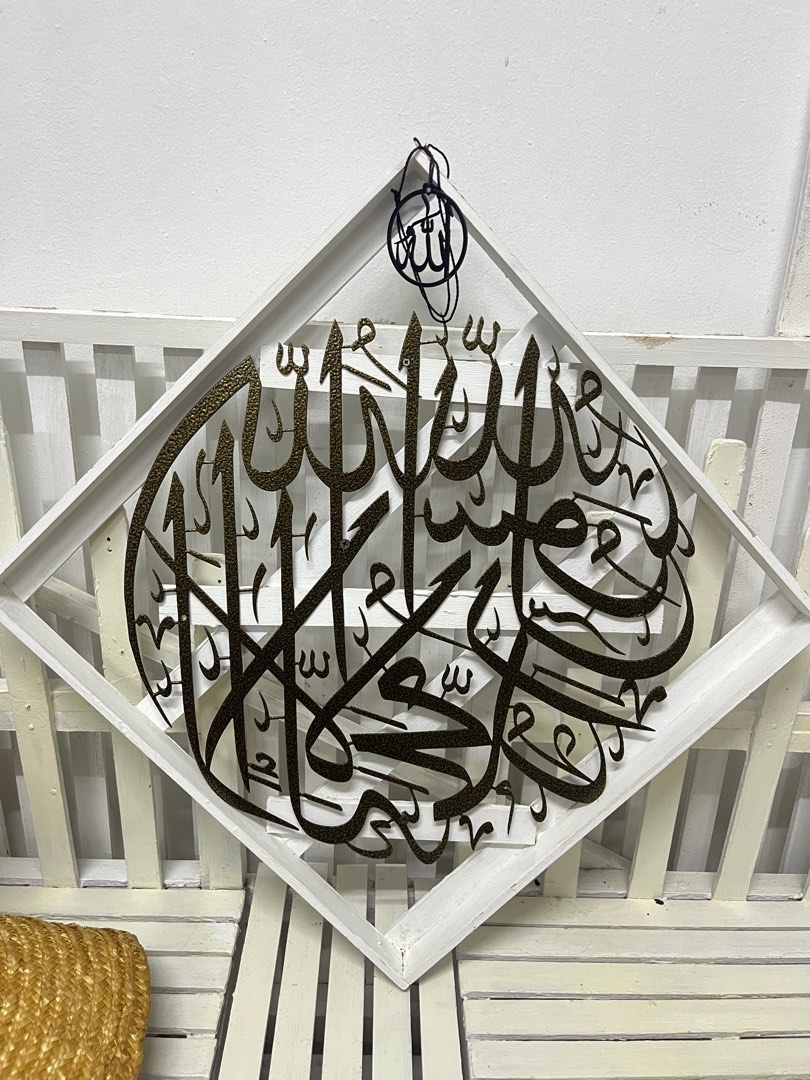 الله
لا إله إلا الله محمد رسول الله